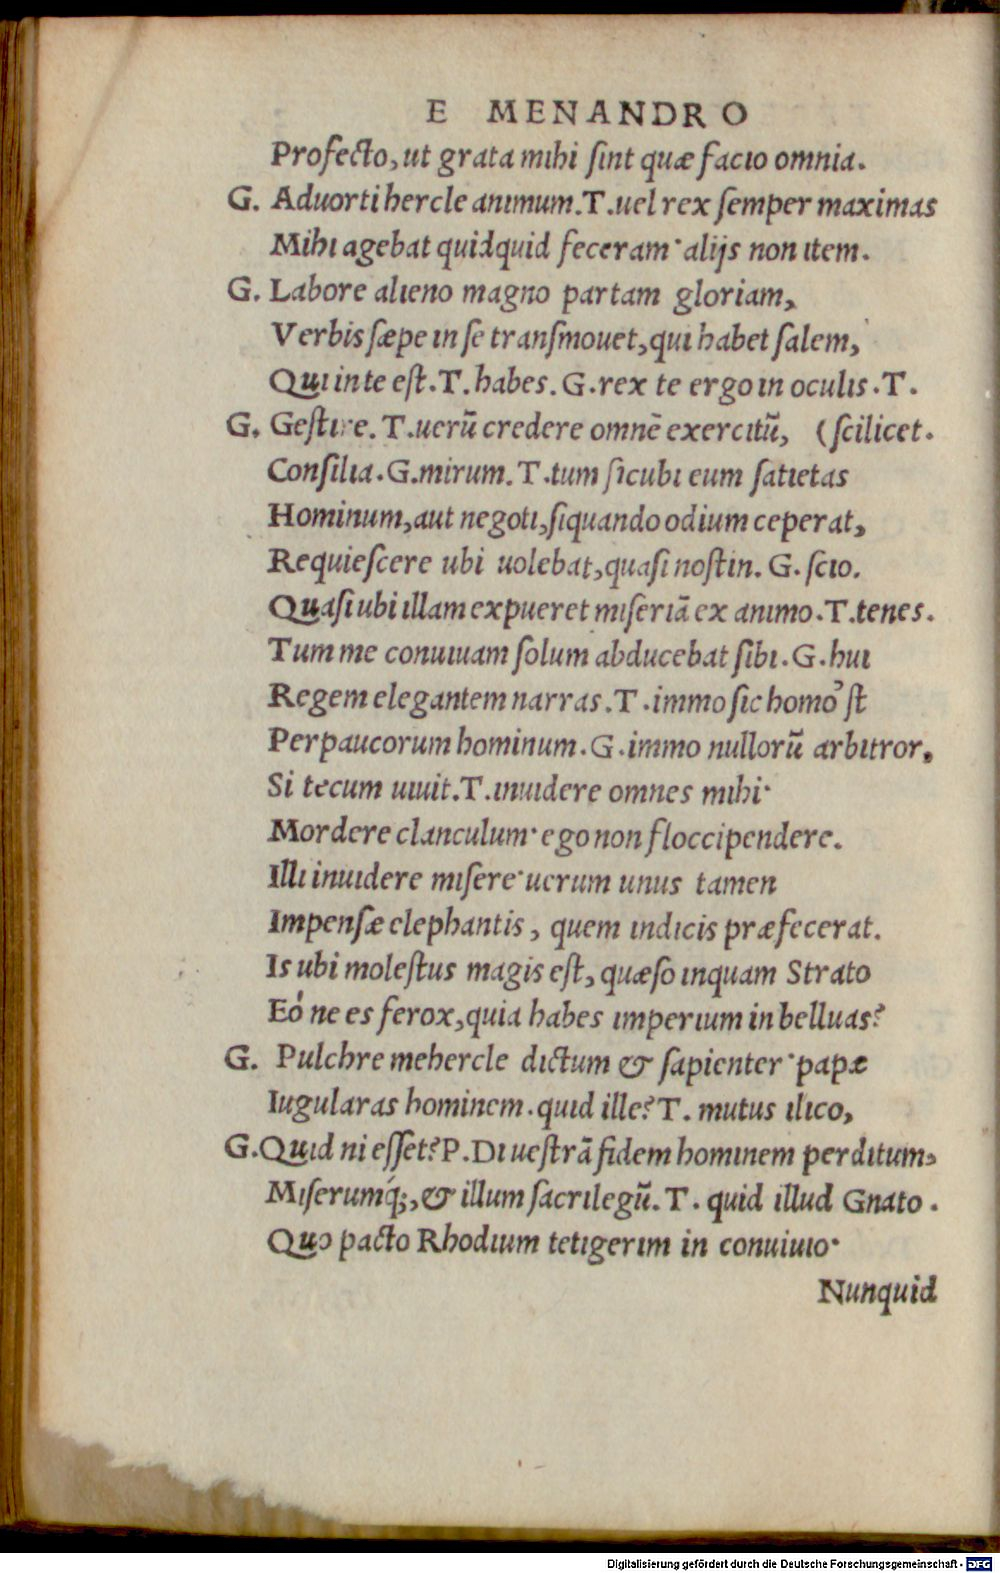 E MENANDRO
Profecto, ut grata mihi ſint quæ facio omnia.
G. Aduorti hercle animum. T. uel rex ſemper maximas
Mihi agebat quidquid feceram· alijs non item.
G. Labore alieno magno partam gloriam,
Verbis ſæpe in ſe tranſmouet, qui habet ſalem,
Qui in te eſt. T. habes. G. rex te ergo in oculis. T.
G. Geſtire. T. uerũ credere omnẽ exercitũ, (ſcilicet.
Conſilia. G. mirum. T. tum ſicubi eum ſatietas
Hominum, aut negoti, ſiquando odium ceperat,
Requieſcere ubi uolebat, quaſi noſtin. G. ſcio.
Quaſi ubi illam expueret miſeriã ex animo. T. tenes.
Tum me conuiuam ſolum abducebat ſibi. G. hui
Regem elegantem narras. T. immo ſic homo ̓ſt
Perpaucorum hominum. G. immo nullorũ arbitror,
Si tecum uiuit. T. inuidere omnes mihi·
Mordere clanculum· ego non floccipendere.
Illi inuidere miſere· uerum unus tamen
Impenſæ elephantis, quem indicis præfecerat.
Is ubi moleſtus magis eſt, quæſo inquam Strato
Eó ne es ferox, quia habes imperium in belluas?
G. Pulchre mehercle dictum & ſapienter· papæ
Iugularas hominem. quid ille? T. mutus ilico,
G. Quid ni eſſet? P. Di ueſtrã fidem hominem perditum,
Miſerumq́;, & illum ſacrilegũ. T. quid illud Gnato.
Quo pacto Rhodium tetigerim in conuiuio·
Nunquid
Digitalisierung gefördert durch die Deutsche Forschungsgemeinschaft - DFG